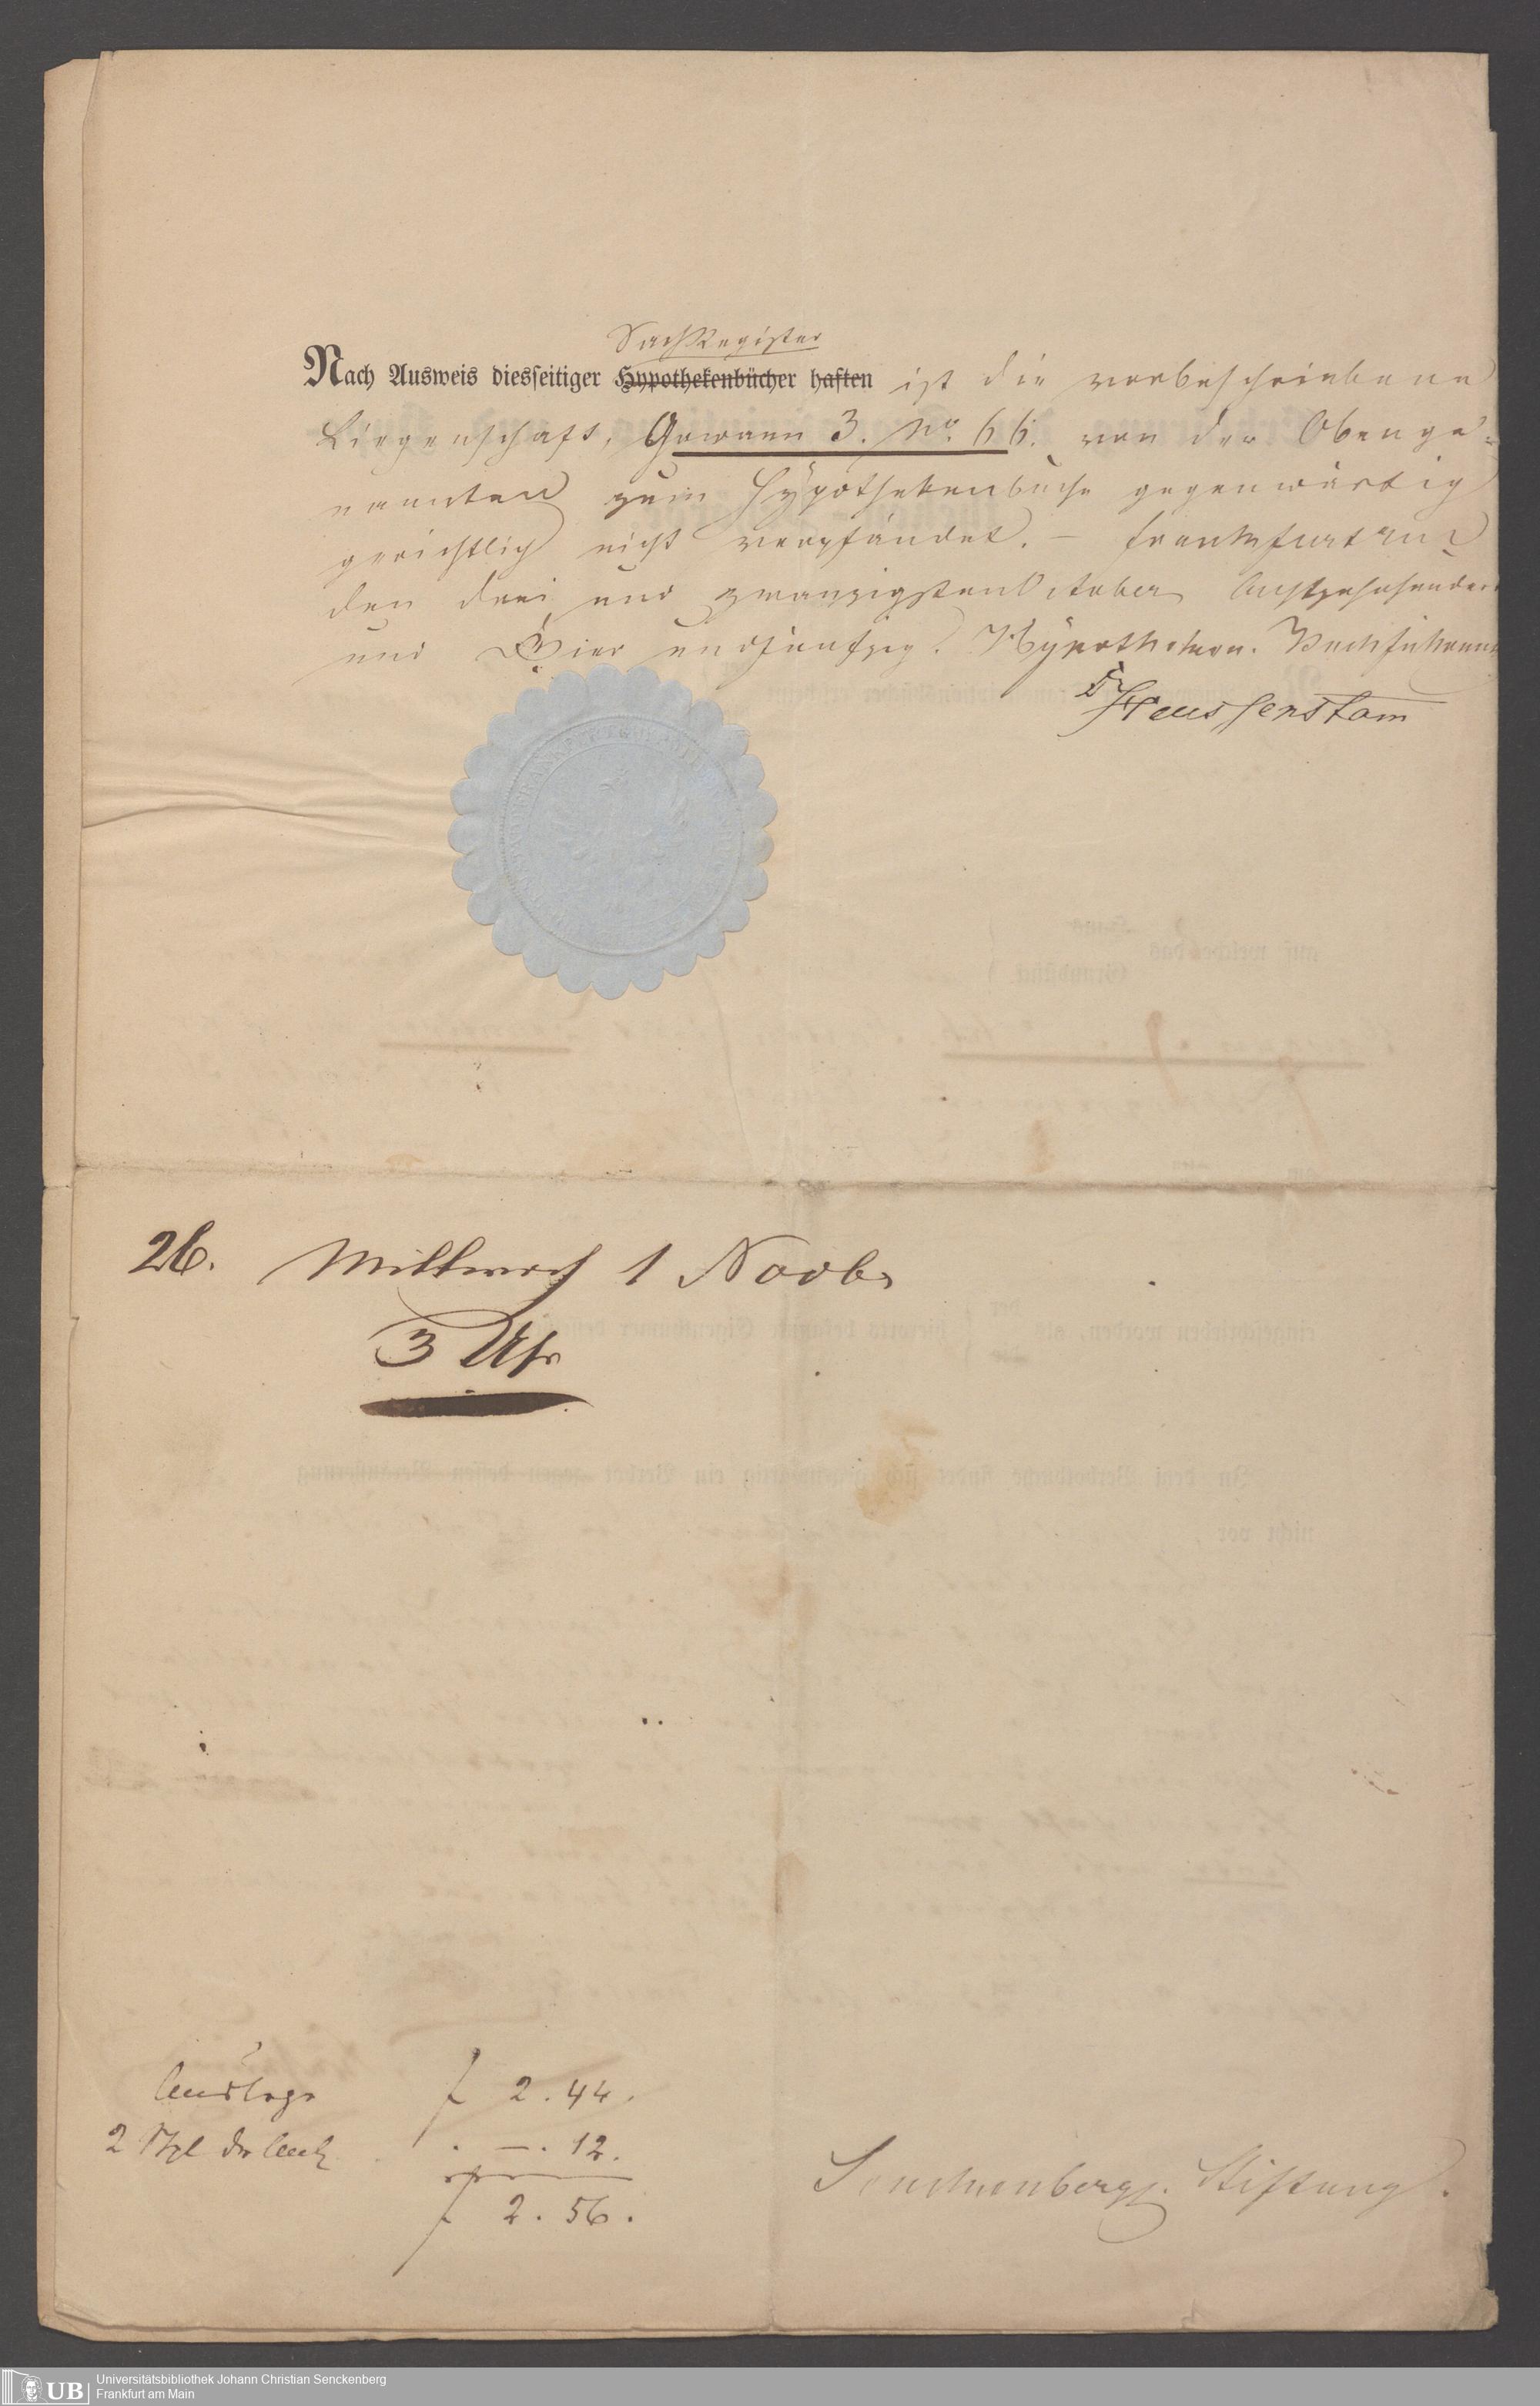 SachRegister
Nach Ausweis diesseitiger Hypothekenbücher haften ist die vorbeschriebene
Liegenschaft, Gewann 3. No. 66. von der Obenge-
nannten zum Hypothekenbuche gegenwärtig
gerichtlich nicht verpfändet. – Frankfurt a/m
den drei und zwanzigsten October Achtzehnhundert
und Vier und fünfzig. Hypotheken. Buchführer
Dr Heussenstam
26. Mittwoch 1 Novbr
3 Uhr
Auslage f 2.44.
2 Stpl –.12.
f 2.56.
Senckenbergs. Stiftung.
UB
Universitätsbibliothek Johann Christian Senckenberg
Frankfurt am Main